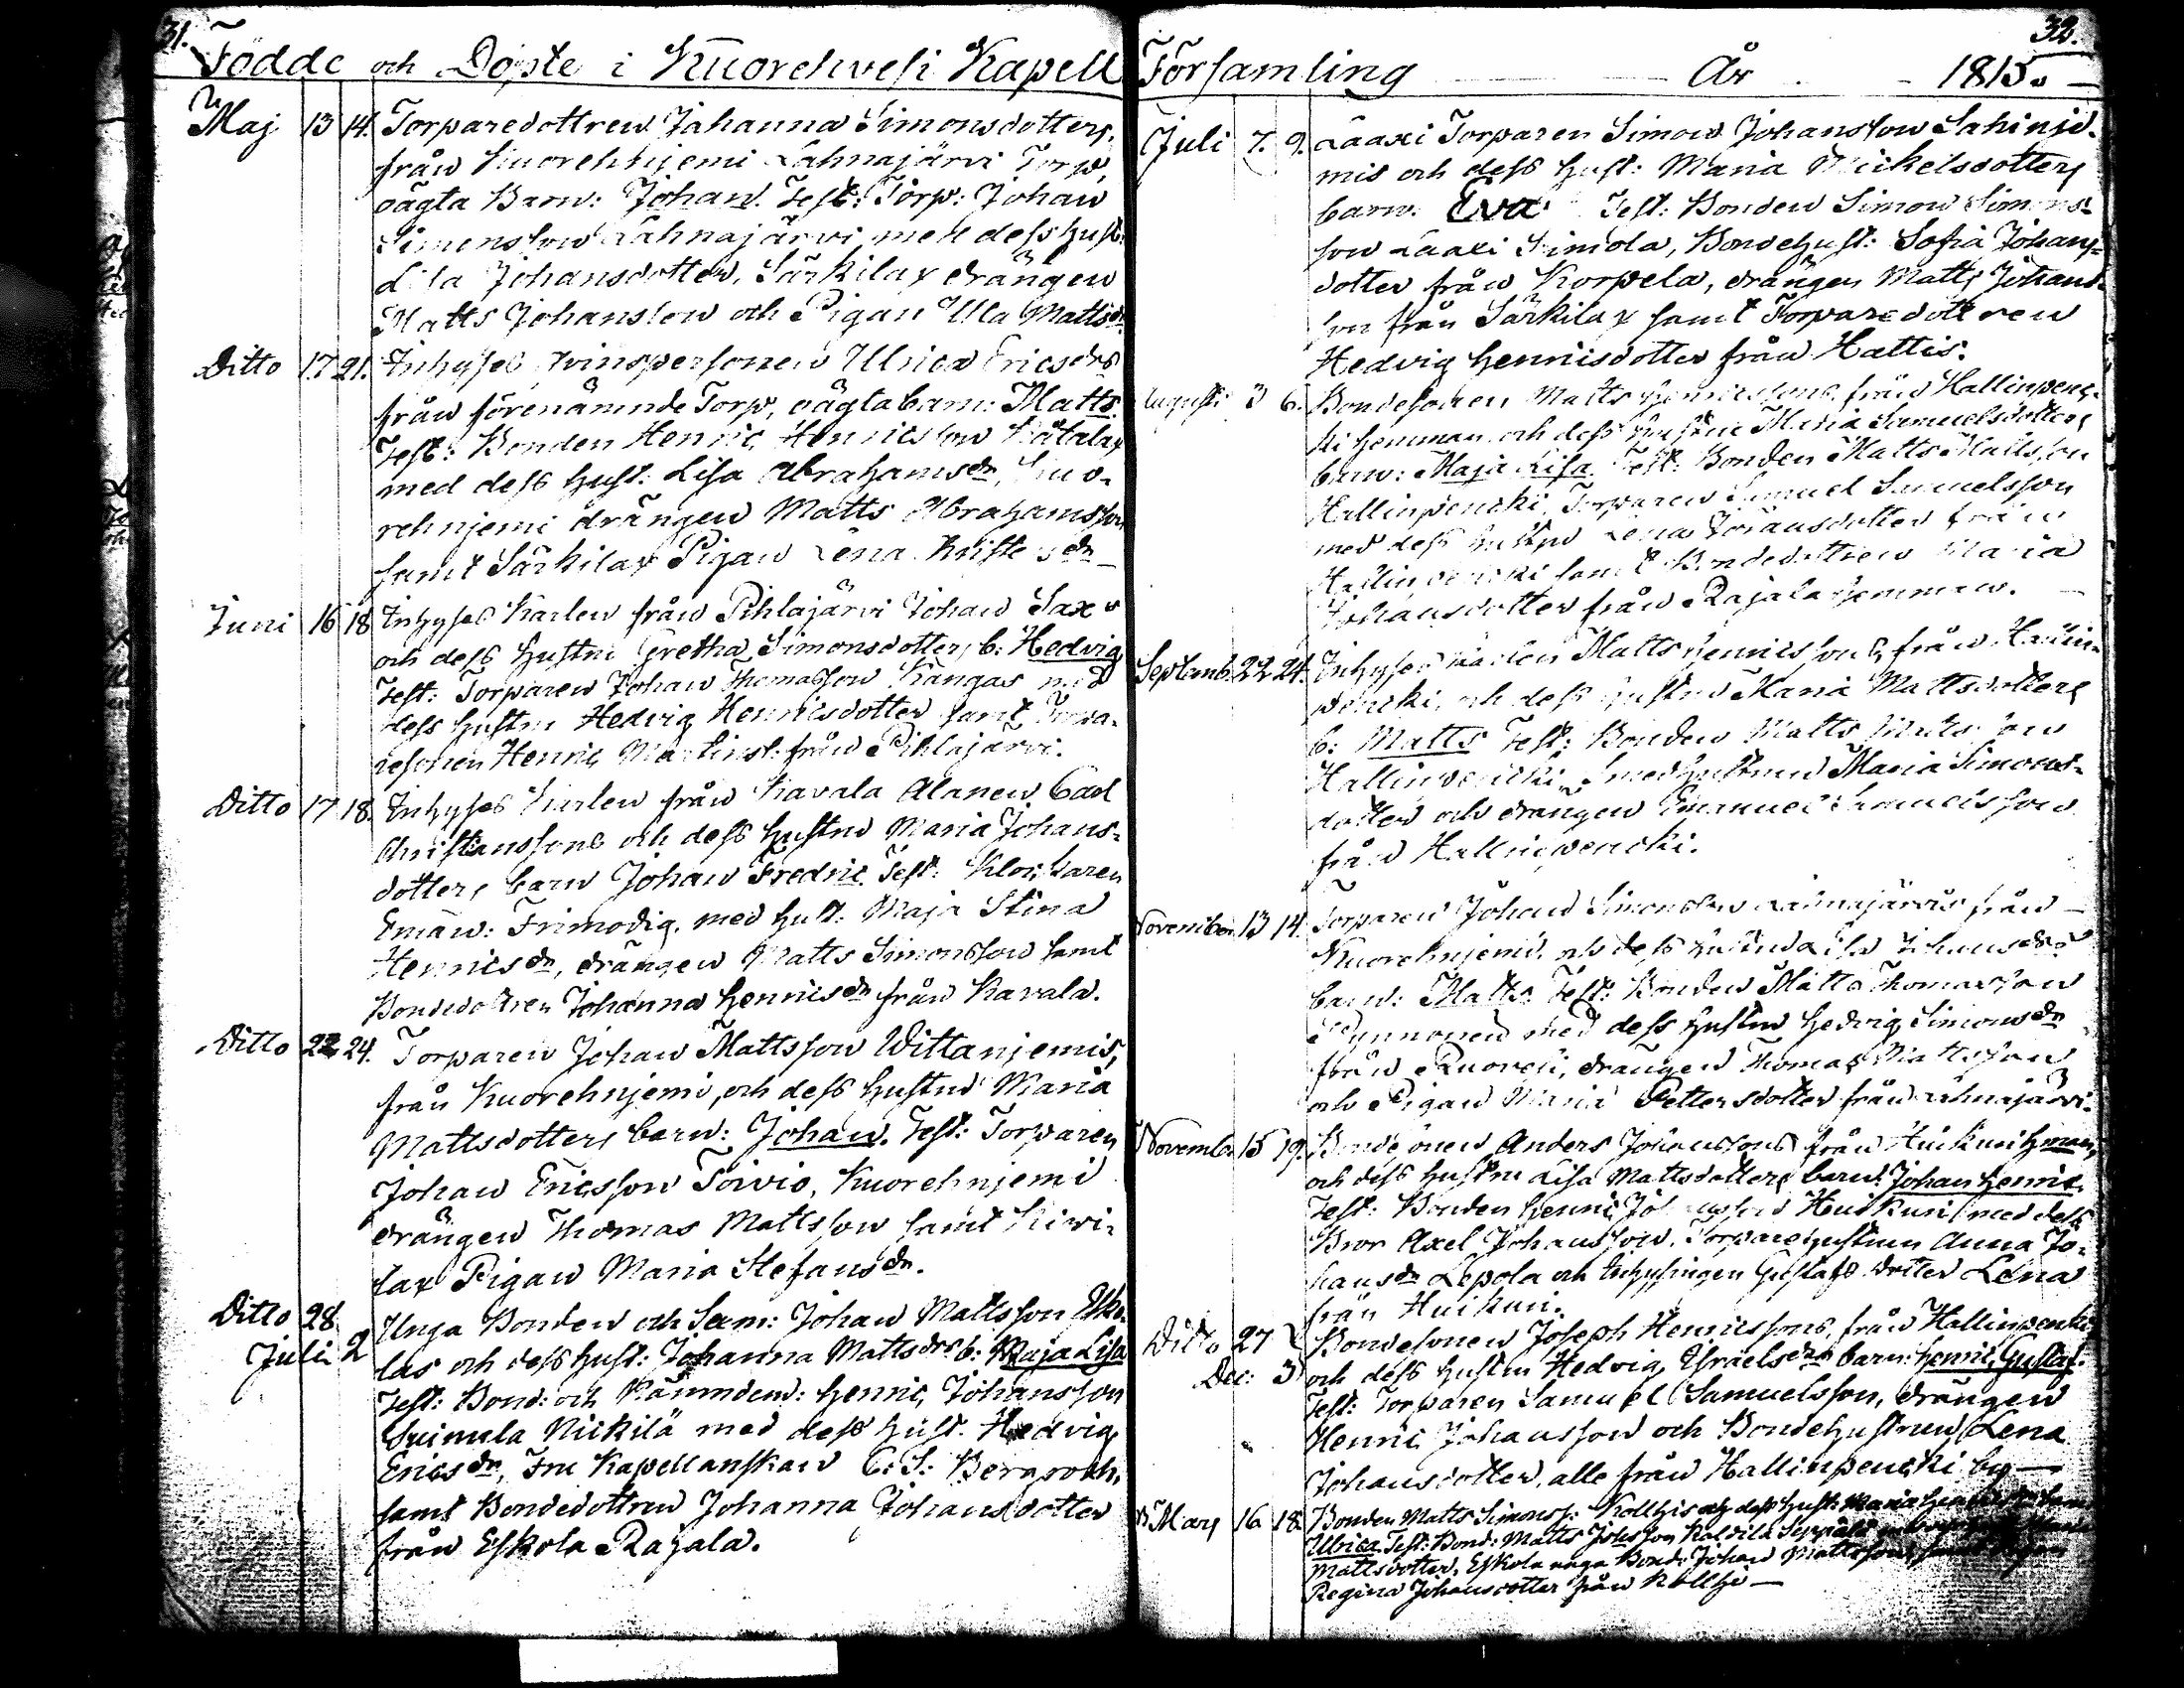 31.
Födde och Döpte i Kuorehvesi Kapell
Maj 13 14. Torparedottren Jahanna Simonsdotters,
från Kuorehnjemi Lahnajärvi Torp,
oägta Barn: Johan. Test: Torp: Johan
Simonsson Lahnajärvi med dess hust:
Lisa Johansdotter, Särkilax drängen
Matts Johansson och Pigan Ulla Mattsdr
Ditto 17 21. Inhyses qvinspersonen Ulrica Ericsdrs
från förenämnde Torp, oägta barn: Matts.
Test: Bonden Henric Henricsson
med dess hust: Lisa Abrahamsdr, Kuo-
rehnjemi drängen Matts Abrahamsson
samt Särkilax Pigan Lena
Juni 16 18 Inhyses Karlen från Pihlajärvi Johan Sax
och dess hustru Gretha Simonsdotters b: Hedvig
Test: Torparen Johan Thomasson Kangas med
dess hustru Hedvig Henricsdotter samt Torpa-
resonen Henric Martinss: från Pihlajärvi.
Ditto 17 18. Inhyses Karlen från Kavala Alanen Carl
Christianssons och dess hustru Maria Johans-
dotters barn Johan Fredric. Test: Klockaren
Eman: Frimodig, med hust: Maja Stina
Henricsdr, drängen Matts Simonsson samt
Bondedottren Johanna Henricsdr från Kavala.
Ditto 22 24. Torparen Johan Mattsson Wittanjemis,
från Kuorehnjemi, och dess hustru Maria
Mattsdotters barn: Johan. Test: Torparen
Johan Ericsson Toivio, Kuorehnjemi
drängen Thomas Mattsson samt Kiwi-
lax Pigan Maria Stefansdr.
Ditto 28. Unga Bonden och Näm: Johan Mattsson Esko-
Juli 2 las och dess hust: Johanna Mattsdrs b: Maja Lisa
Test: Bond: och Nämndem: Henric Johansson
Suinula Nickilä med dess hust: Hedvig
Ericsdr, Fru Kapellanskan C: S: Bergroth,
samt Bondedottren Johanna Johansdotter
från Eskola Rajala.
32.
Församling År 1815.
Juli 7. 9. Laaxi Torparen Simon Johansson Sahinje-
mis och dess hust: Maria Mickelsdotters
barn: Eva Test: Bonden Simon Simons-
son Laaxi Simola, Bondehust: Sofia Johans-
dotter från Korpela, drängen Matts Johans-
son från Särkilax samt Torparedottren
Hedvig Henricsdotter från Hattis.
Augusti 3 6. Bondesonen Matts Henricssons från Hallinpens-
ki hemman och dess hustru Maria Samuelsdotters
barn: Maja Lisa. Test: Bonden Matts Mattsson
Hallinpenski, Torparen Samuel Samuelsson
med dess hustru Lena Johansdotter från
Hallinpenski samt Bondedottren Maria
Johansdotter från Rajala hemman.
Septemb. 22 24. Inhyses Karlen Matts Henricssons, från Hallin-
penski, och dess hustru Maria Mattsdotters
b: Matts Test: Bonden Matts Mattsson
Hallinpenski, Smedhustrun Maria Simons-
dotter och drängen Emanuel Samuelsson
från Hallinpenski.
November 13 14. Torparen Johan Simonsson Lahnajärvis från
Kuorehnjemi, och dess hustru Lisa Johansdrs
barn: Matts. Test: Bonden Matts Thomasson
Pynnonen med dess hustru Hedvig Simonsdr
från Ruovesi, drängen Thomas Mattsson
och Pigan Maria Pettersdotter från Lahnajärvi.
Novemb. 15 19. Bondesonen Anders Johanssons från Huikuri Hman,
och dess hustru Lisa Mattsdotters barn: Johan Henric.
Test: Bonden Henric Johansson Huikuri med dess
Bror Axel Johansson, Torparehustrun Anna Jo-
hansdr Lepola och Inhysingen Gustafs Dotter Lena
från Huikuri.
Ditto 27 Bondesonen Joseph Henricssons, från Hallinpenski
Dec: 3 och dess hustru Hedvig Israelsdrs barn: Henric Gustaf.
Test: Torparen Samuel Samuelsson, drängen
Henric Johansson och Bondehustrun Lena
Johansdotter, alle från Hallinpenski by
Mars 16 18. Bonden Matts Simonss: Kolhis och dess hust: Maria
Ulrica Test: Bond: Matts Johsson Kaldila Seppälä
Mattsdotter, Eskola unga Bond: Johan Mattsson, samt
Regina Johansdotter från Kolhi